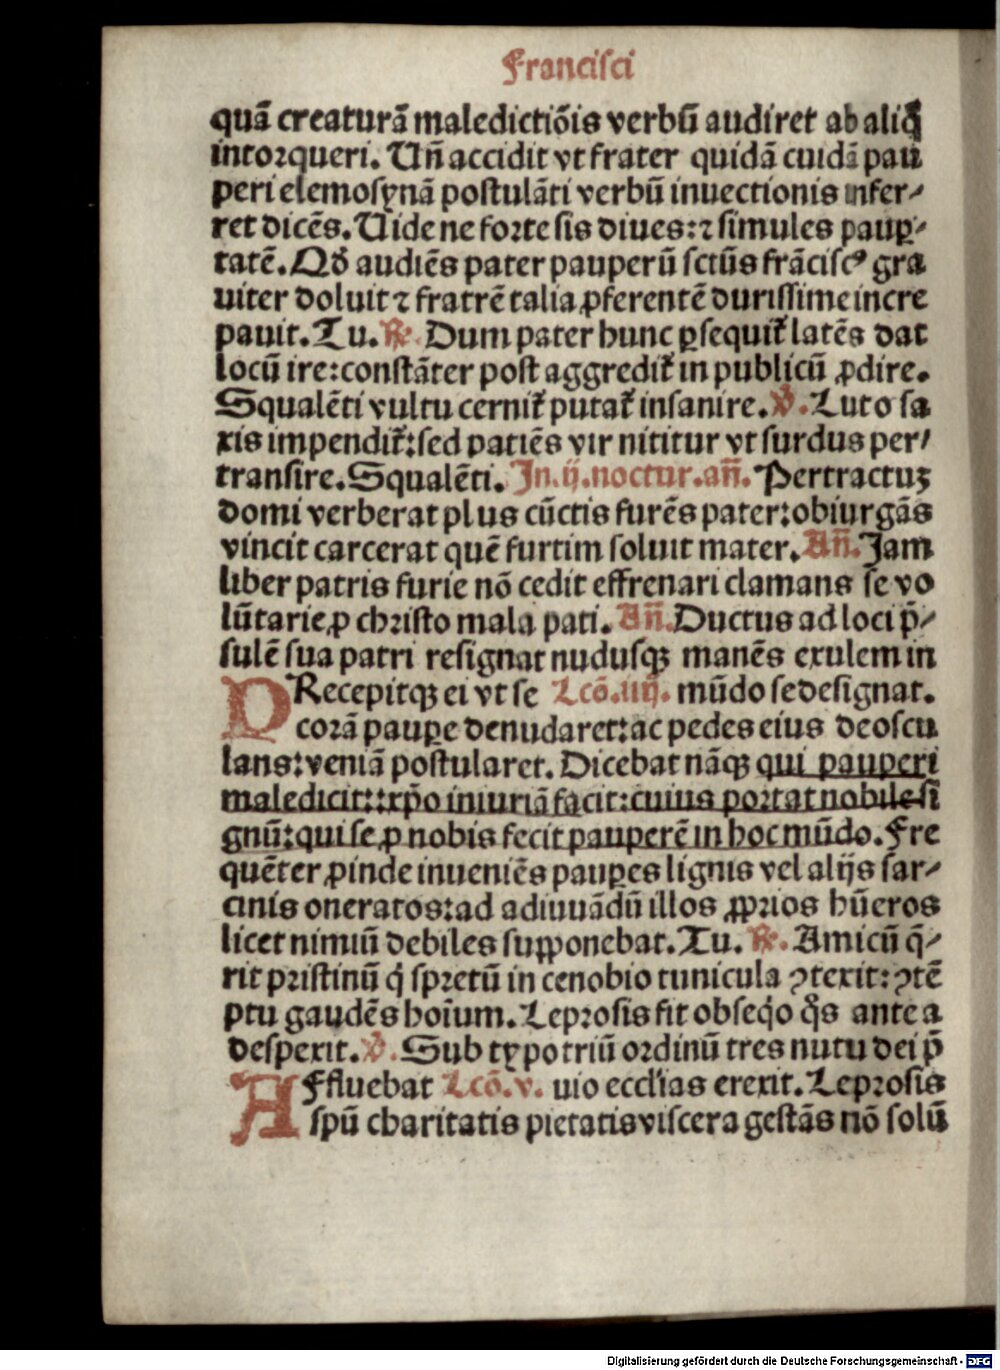 Francisci
quā creaturā maledictiōis verbū audiret ab aliq̄
intorqueri. Un̄ accidit vt frater quidā cuidā pau
peri elemosynā postulāti verbū inuectionis infer⸗
ret dicēs. Uide ne forte sis diues: ⁊ simules paup̱⸗
tatē. Qd̄ audiēs pater pauperū sctūs frācisc⁹ gra
uiter doluit ⁊ fratrē talia ꝓferentē durissime incre
pauit. Tu. ℟. Dum pater hunc ꝑsequit᷑ latēs dat
locū ire: constāter post aggredit᷑ in publicū ꝓdire.
Squalēti vultu cernit᷑ putat᷑ insanire. ℣. Luto sa
xis impendit᷑: sed patiēs vir nititur vt surdus per⸗
transire. Squalēti. In.ij.noctur.an̄. Pertractuꝫ
domi verberat plus cūctis furēs pater: obiurgās
vincit carcerat quē furtim soluit mater. An̄. Jam
liber patris furie nō cedit effrenari clamans se vo
lūtarie ꝓ christo mala pati. An̄. Ductus ad loci p̄⸗
sulē sua patri resignat nudusqꝫ manēs exulem in
PRecepitqꝫ ei vt se Lcō.iiij. mūdo se designat.
corā pauꝑe denudaret: ac pedes eius deoscu
lans: veniā postularet. Dicebat nāqꝫ qui pauperi
maledicit: xp̄o iniuriā facit: cuius portat nobile si
gnū: qui se ꝓ nobis fecit pauperē in hoc mūdo. Fre
quēter ꝓinde inueniēs pauꝑes lignis vel alijs sar⸗
cinis oneratos: ad adiuuādū illos ꝓprios hūeros
licet nimiū debiles supponebat. Tu. ℟. Amicū q̄⸗
rit pristinū q̇ spretū in cenobio tunicula ꝯtexit: ꝯtē
ptu gaudēs hoīum. Leprosis fit obseq̇o q̄s ante a
despexit. ℣. Sub typo triū ordinū tres nutu dei p̄
AFfluebat Lcō.v. uio eccl'ias erexit. Leprosis
spū charitatis pietatis viscera gestās nō solū
Digitalisierung gefördert durch die Deutsche Forschungsgemeinschaft - DFG